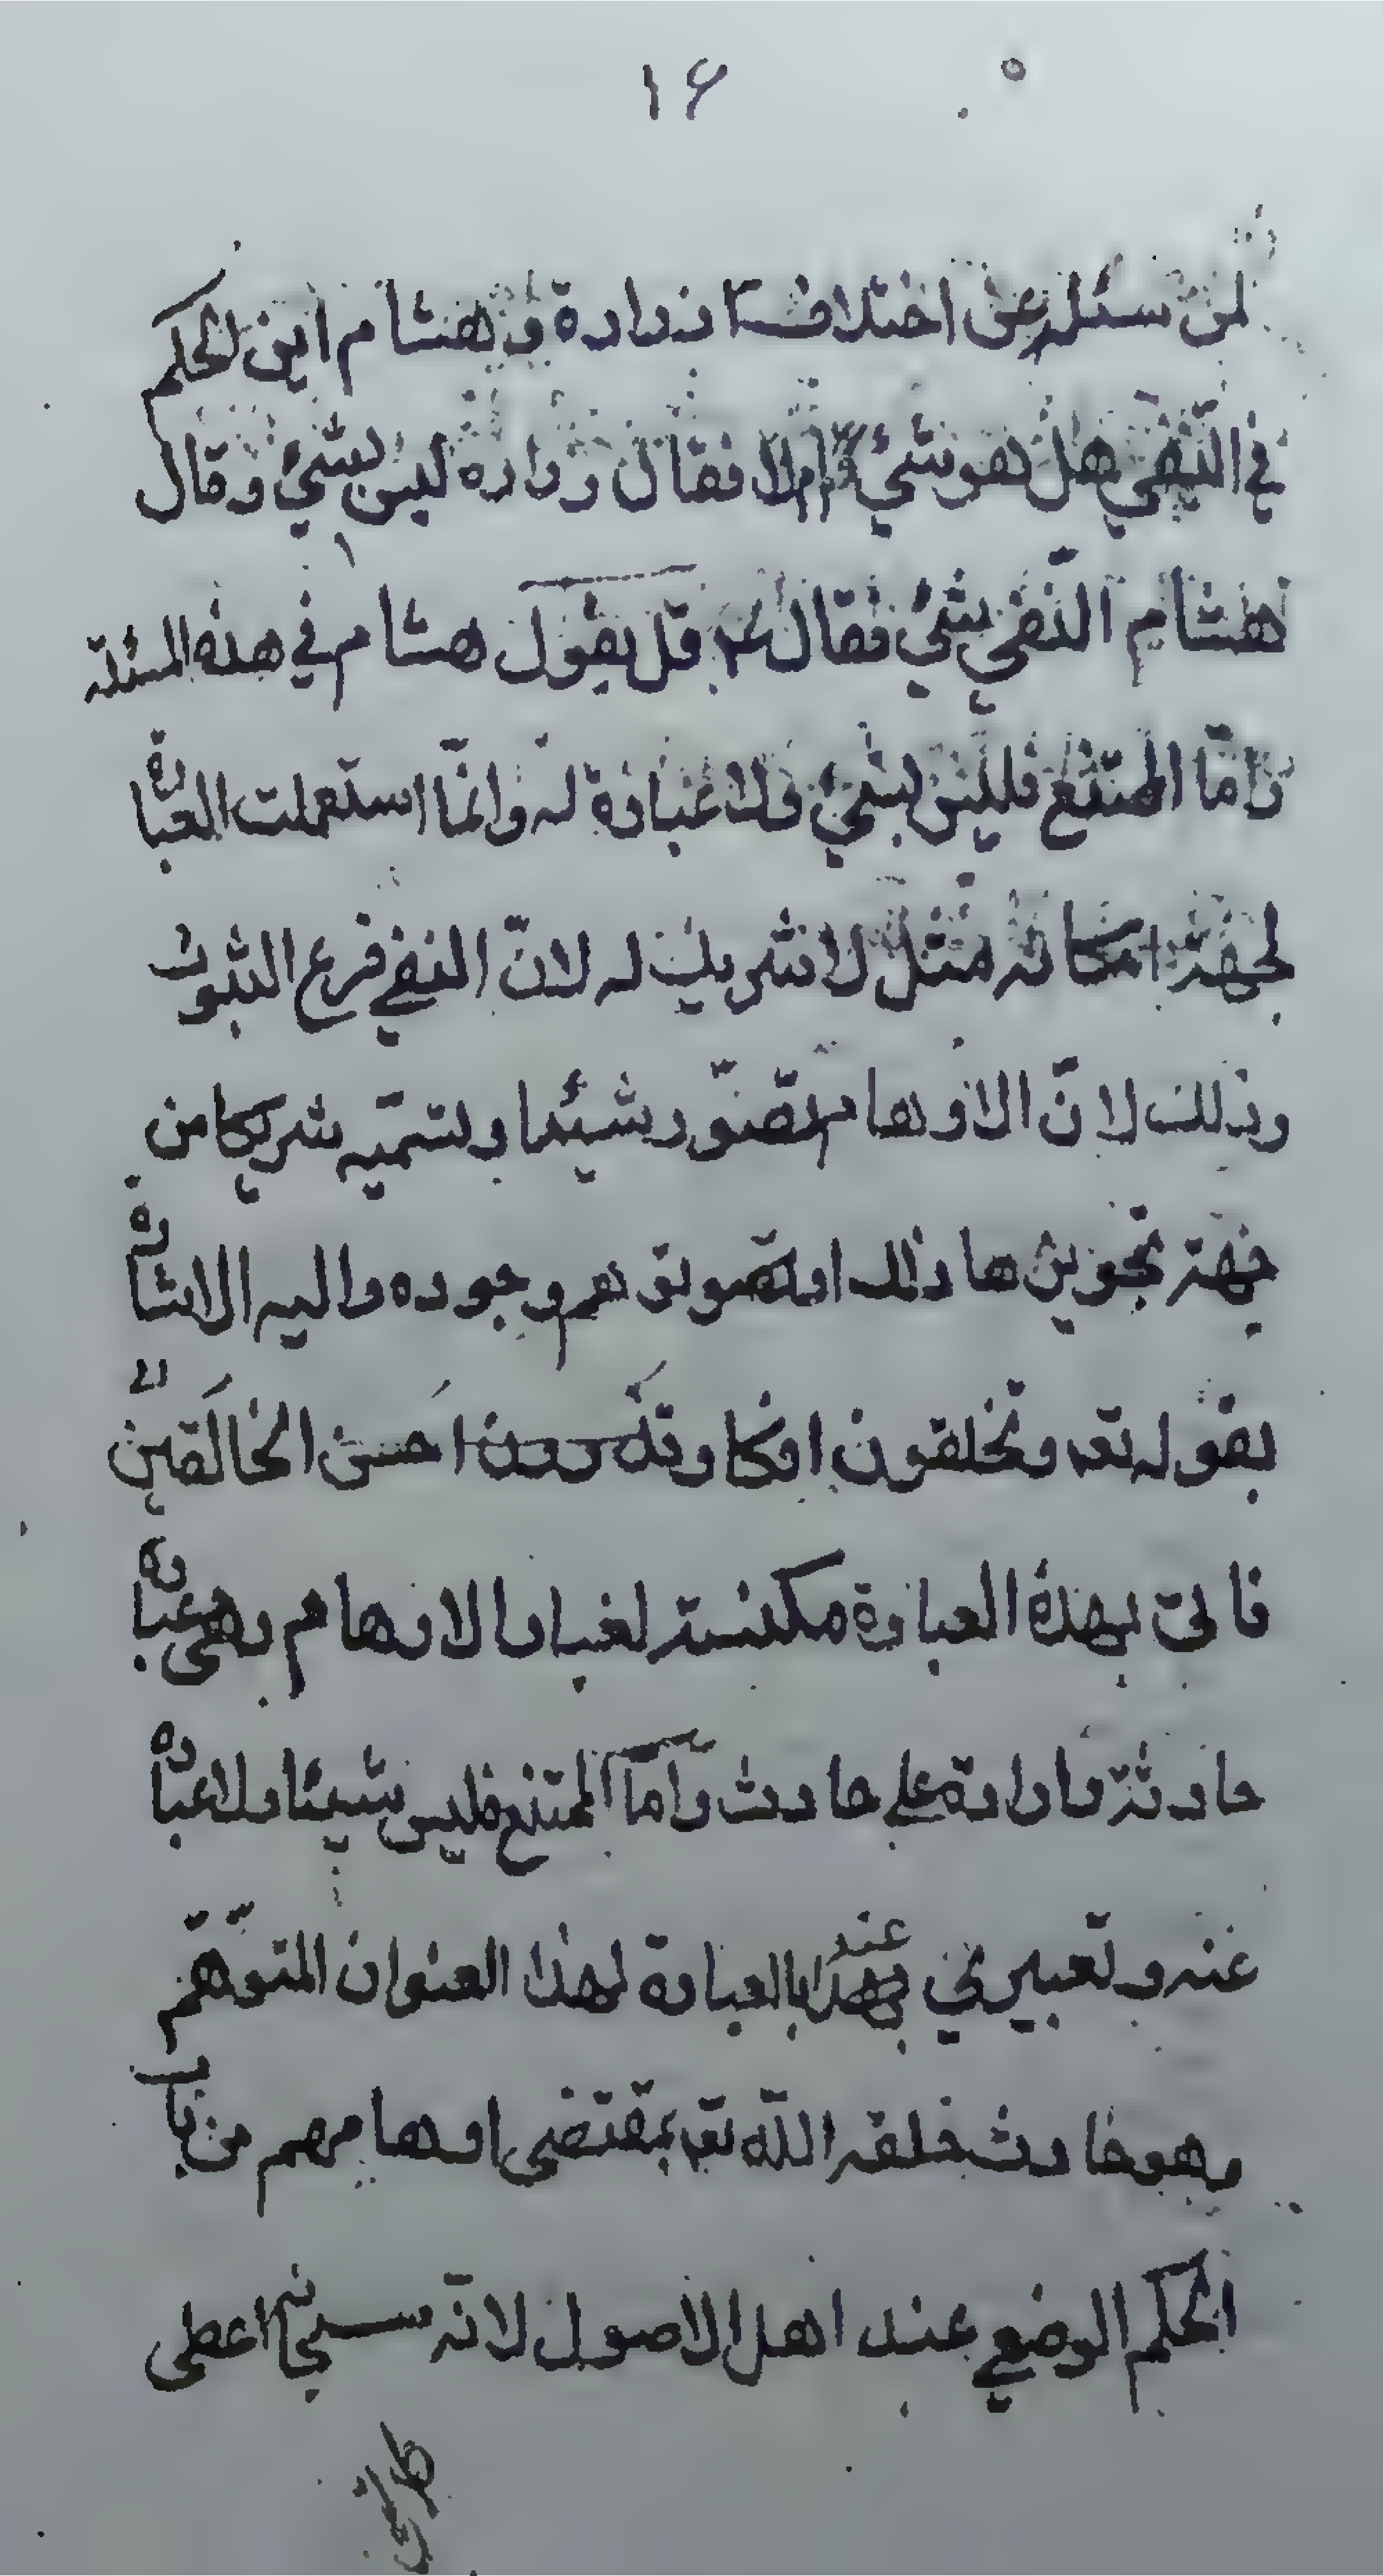 ١٤
لمن سئله عن اختلاف زرارة و هشام ابن الحكم
في النفي هل هو شيء ام لا فقال زراره ليس بشيء و قال
هشام النفي شيء فقال ع قل بقول هشام في هذه المسئلة
و امّا الممتنع فليس بشيء فلا عبارة له و انّما استعملت العبارة
لجهة امكانه مثل لا شريك له لانّ النفي فرع الثبوت
وذلك لانّ الاوهام تتصوّر شيئا و تسمّيه شريكا من
جهة تجويزها ذلك او لتصوّر توهم وجوده واليه الاشارة
بقوله تعه وتخلقون افكا و احسن الخالقين
فاتى بهذه العبارة مكنسة لغبار الاوهام وهي عبارة
حادثة واردة على حادث وامّا الممتنع فليس شيئا ولا عبارة
عنه و تعبيري عنه بهذا بالعبارة لهذا العنوان المتوهّم
وهو حادث خلقه اللّه تعه بمقتضى اوهامهم من باب
الحكم الوضعي عند اهل الاصول لانّه سبحانه اعطى